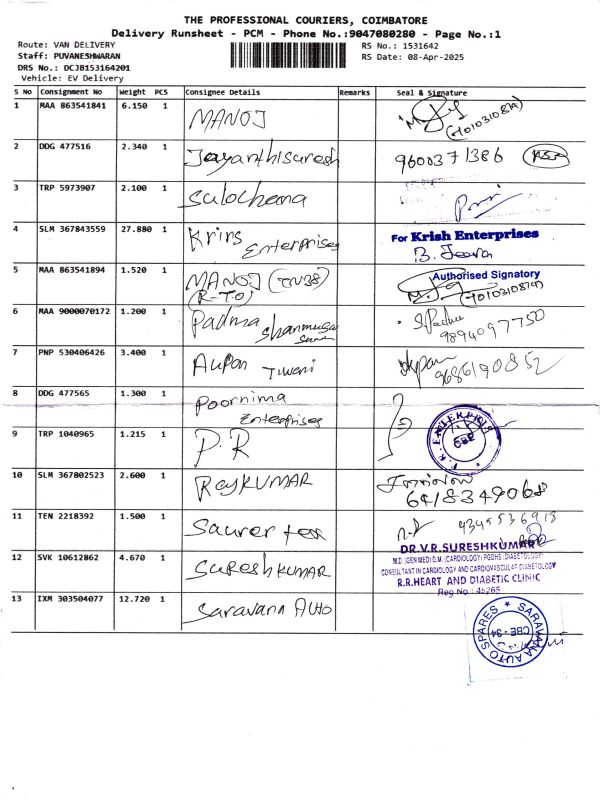 THE PROFESSIONAL COURIERS, COIMBATORE
Delivery Runsheet - PCM - Phone No.:9047080280 - Page No.:1
Route: VAN DELIVERY RS No.: 1531642
Staff: PUVANESHWARAN RS Date: 08-Apr-2025
DRS No.: DCJB153164201
Vehicle: EV Delivery
S No Consignment No Weight PCS Consignee Details Remarks Seal & Signature
1 MAA 863541841 6.150 1 MANOJ
2 DDG 477516 2.340 1 Jayanthisuresh 9600371386
3 TRP 5973907 2.100 1 Sulochana
4 SLM 367843559 27.880 1 Krins Enterprises For Krish Enterprises
B. Jeeva
Authorised Signatory
5 MAA 863541894 1.520 1 MANOJ (TN38)
(R-TO)
6 MAA 9000070172 1.200 1 Padma Shanmuga S.Padma
9894097750
7 PNP 530406426 3.400 1 Tiwari
9686190852
8 DDG 477565 1.300 1 Poornima
Enterprises
9 TRP 1040965 1.215 1 P.R
10 SLM 367802523 2.600 1 RAJKUMAR
11 TEN 2218392 1.500 1
12 SVK 10612862 4.670 1 SURESH KUMAR DR.V.R.SURESHKUMAR
M.D.(GEN MED) D.M.(CARDIOLOGY) PGDHS (DIABETOLOGY)
CONSULTANT IN CARDIOLOGY AND CARDIOVASCULAR DIABETOLOGY
R.R.HEART AND DIABETIC CLINIC
Reg No : 45265
13 IXM 303504077 12.720 1 Saravana AUTO
SARAVANA AUTO SPARES
CBE - 34